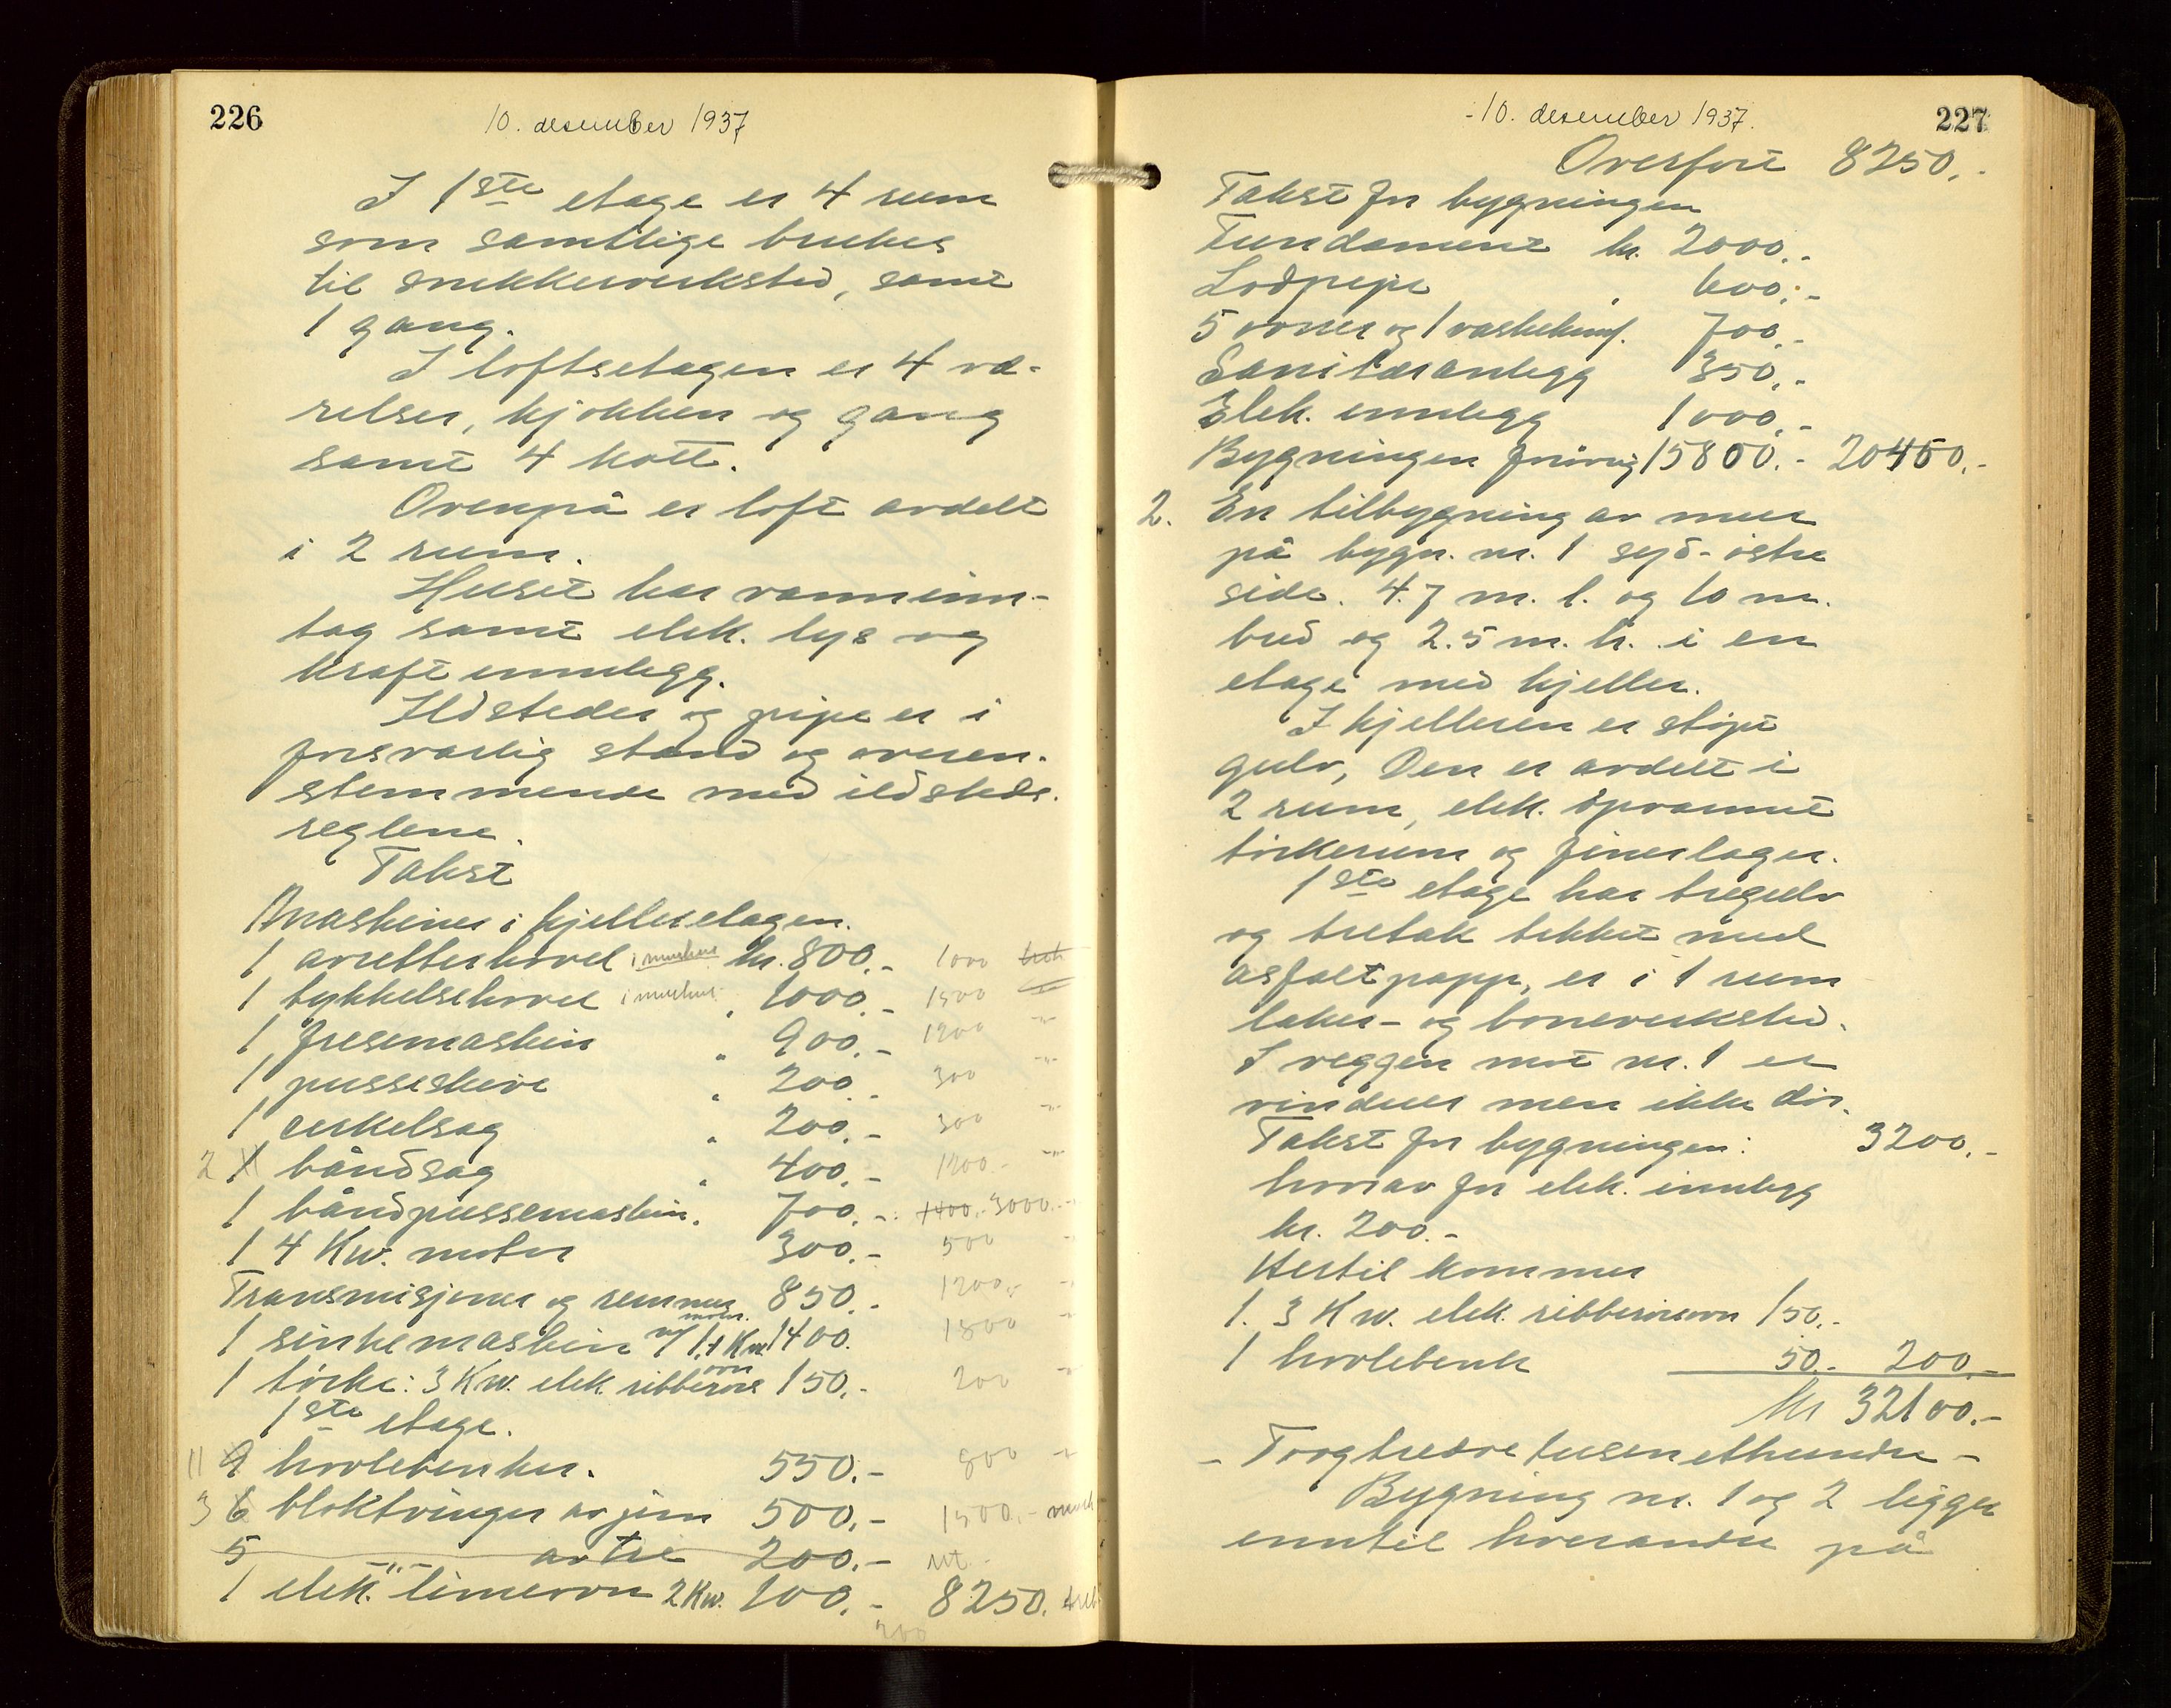 226
10. desember 1937
I 1ste etage er 4 rum
som samtlige brukes
til snekkerverksted, samt
1 gang.
I loftsetagen er 4 væ-
relser, kjøkken og gang
samt 4 kott.
Ovenpå er loft avdelt
i 2 rum.
Huset har vanninn-
tag samt elek. lys og
kraft innlegg.
Ildsteder og pipe er i
forsvarlig stand og overen-
stemmende med ildsteds-
reglene.
Takst
Maskiner i kjelleretagen.
1 avretterhøvel kr. 800.- 1000
1 tykkelsehøvel " 1000.- 1500
1 fresemaskin " 900.- 1200 "
1 pusseskive " 200.- 300 "
1 cirkelsag " 200.- 300 "
2 1 båndsag " 400.- 1200.- "
1 båndpussemaskin. 700.- 1400.- 3000.-
1 4 Kw. motor 300.- 500
Transmisjoner og remmer 850.- 1200.-
1 sinkemaskin m/ 1,1 Kw. motor. 1400. 1800
1 tørke: 3 Kw. elek. ribberørsovn 150.- 200
1ste etage.
11 9 høvlebenker. 550.- 800
3 6 bloktvinger av jern 500.- 1500.-
5 -"- av tre 200.- ut.
1 elek. limovn 2 Kw. 100.- 8250.
200
227
-10. desember 1937.
Overført 8250.-
Takst for bygningen
Fundament kr. 2000.-
Lodpipe " 600.-
5 ovner og 1 vaskekomf. 700.-
Sanitæranlegg 350.-
Elek. innlegg 1000.-
Bygningen forøvrig 15800.- 20450.-
2. En tilbygning av mur
på bygn. nr. 1 syd-østre
side. 4.7 m. l. og 10 m.
bred og 2.5 m. h. i en
etage med kjeller.
I kjelleren er støpt
gulv, Den er avdelt i
2 rum, elek. opvarmet
tørkerum og finerlager.
1ste etage har tregulv
og tretak tekket med
asfaltpapp, er i 1 rum
laker- og boneverksted.
I veggen mot nr. 1 er
vinduer men ikke dør.
Takst for bygningen: 3200.-
hvorav for elek. innlegg
kr. 200.-
Hertil kommer
1. 3 Kw. elek. ribberørsovn 150.-
1 høvlebenk 50.- 200.-
Kr 32100.-
- Toogtredve tusen ethundre -
Bygning nr. 1 og 2 ligger
inntil hverandre på